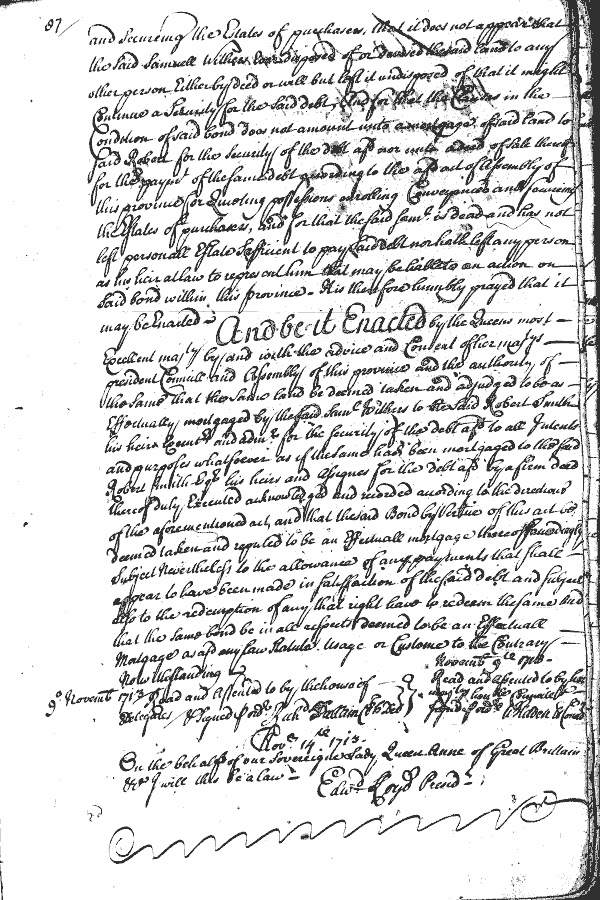 87
and Secureing the Estates of purchasers, that it does not appear that
the said Samuell Withers disposed of or devised the said land to any
other person Either by deed or will but left it undisposed of that it might
Continue a Security for the said debt, And for that the in the
Condition of said bond does not amount unto a mortgage of said land to
said Robert for the Security of the debt afd nor unto a deed of Sale thereof
for the paymt of the same debt according to the afd act of Assembly of
this province for Quieting possessions enrolling Conveyances and secureing
the Estates of purchasers, and for that the said Saml is dead and has not
left personall Estate Sufficient to pay said debt nor hath left any person
as his heir at law to represent him that may be liable to an action on
said bond within this province - It is therefore humbly prayed that it
may be Enacted - And be it Enacted by the Queens most
Excellent majty by and with the advice and Consent of her majtys
president Councill and Assembly of this province and the authority of
the same that the same land be deemed taken and adjudged to be as
Effectually mortgaged by the said Saml Withers to the said Robert Smith
his heirs Executrs and admrs for the security of the debt afd to all Intents
and purposes whatsoever as if the same had been mortgaged to the said
Robert Smith Esqr his heirs and assignes for the debt afd by a firm deed
thereof duly Executed acknowledged and recorded according to the directions
of the aforementioned act, and that the said Bond by Vertue of this act be
deemed taken and reputed to be an Effectuall mortgage thereof accordingly
Subject Nevertheless to the allowance of any payments that shall
appear to have been made in satisfaction of the said debt and subject
also to the redemption of any that right have to redeem the same And
that the same bond be in all respects deemed to be an Effectuall
Mortgage as afd any law Statute Usage or Custome to the Contrary
Notwithstanding
9o Novembr 1713 Read and assented to by the house of
delegates & Signed pr ordr Richd Dallam Cl: h: ded
Novembr 9th 1713
Read and assented to by her
majtys honble Councill
Signd pr ordr
Novr 14th 1713
On the behalfe of our Sovereigne Lady Queen Anne of Great Brittain
&ca I will this be a law
Edwd Lloyd Presidt